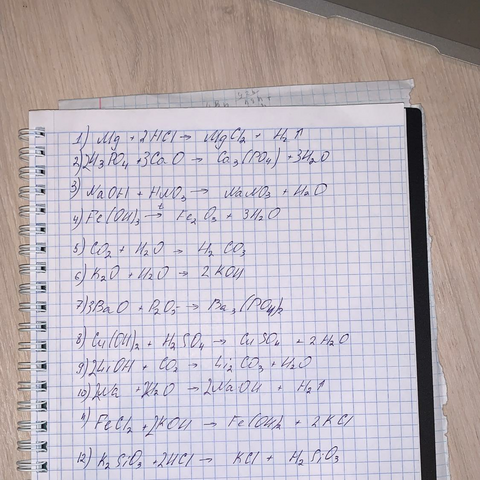 1) Mg + 2HCl → MgCl₂ + H₂↑
2) 2H₃PO₄ + 3CaO → Ca₃(PO₄) + 3H₂O
3) NaOH + HNO₃ → NaNO₃ + H₂O
4) Fe(OH)₃ →ᵗ Fe₂O₃ + 3H₂O
5) CO₂ + H₂O → H₂CO₃
6) K₂O + H₂O → 2KOH
7) 3BaO + P₂O₅ → Ba₃(PO₄)₂
8) Cu(OH)₂ + H₂SO₄ → CuSO₄ + 2H₂O
9) 2LiOH + CO₂ → Li₂CO₃ + H₂O
10) 2Na + 2H₂O → 2NaOH + H₂↑
11) FeCl₂ + 2KOH → Fe(OH)₂ + 2KCl
12) K₂SiO₃ + 2HCl → KCl + H₂SiO₃